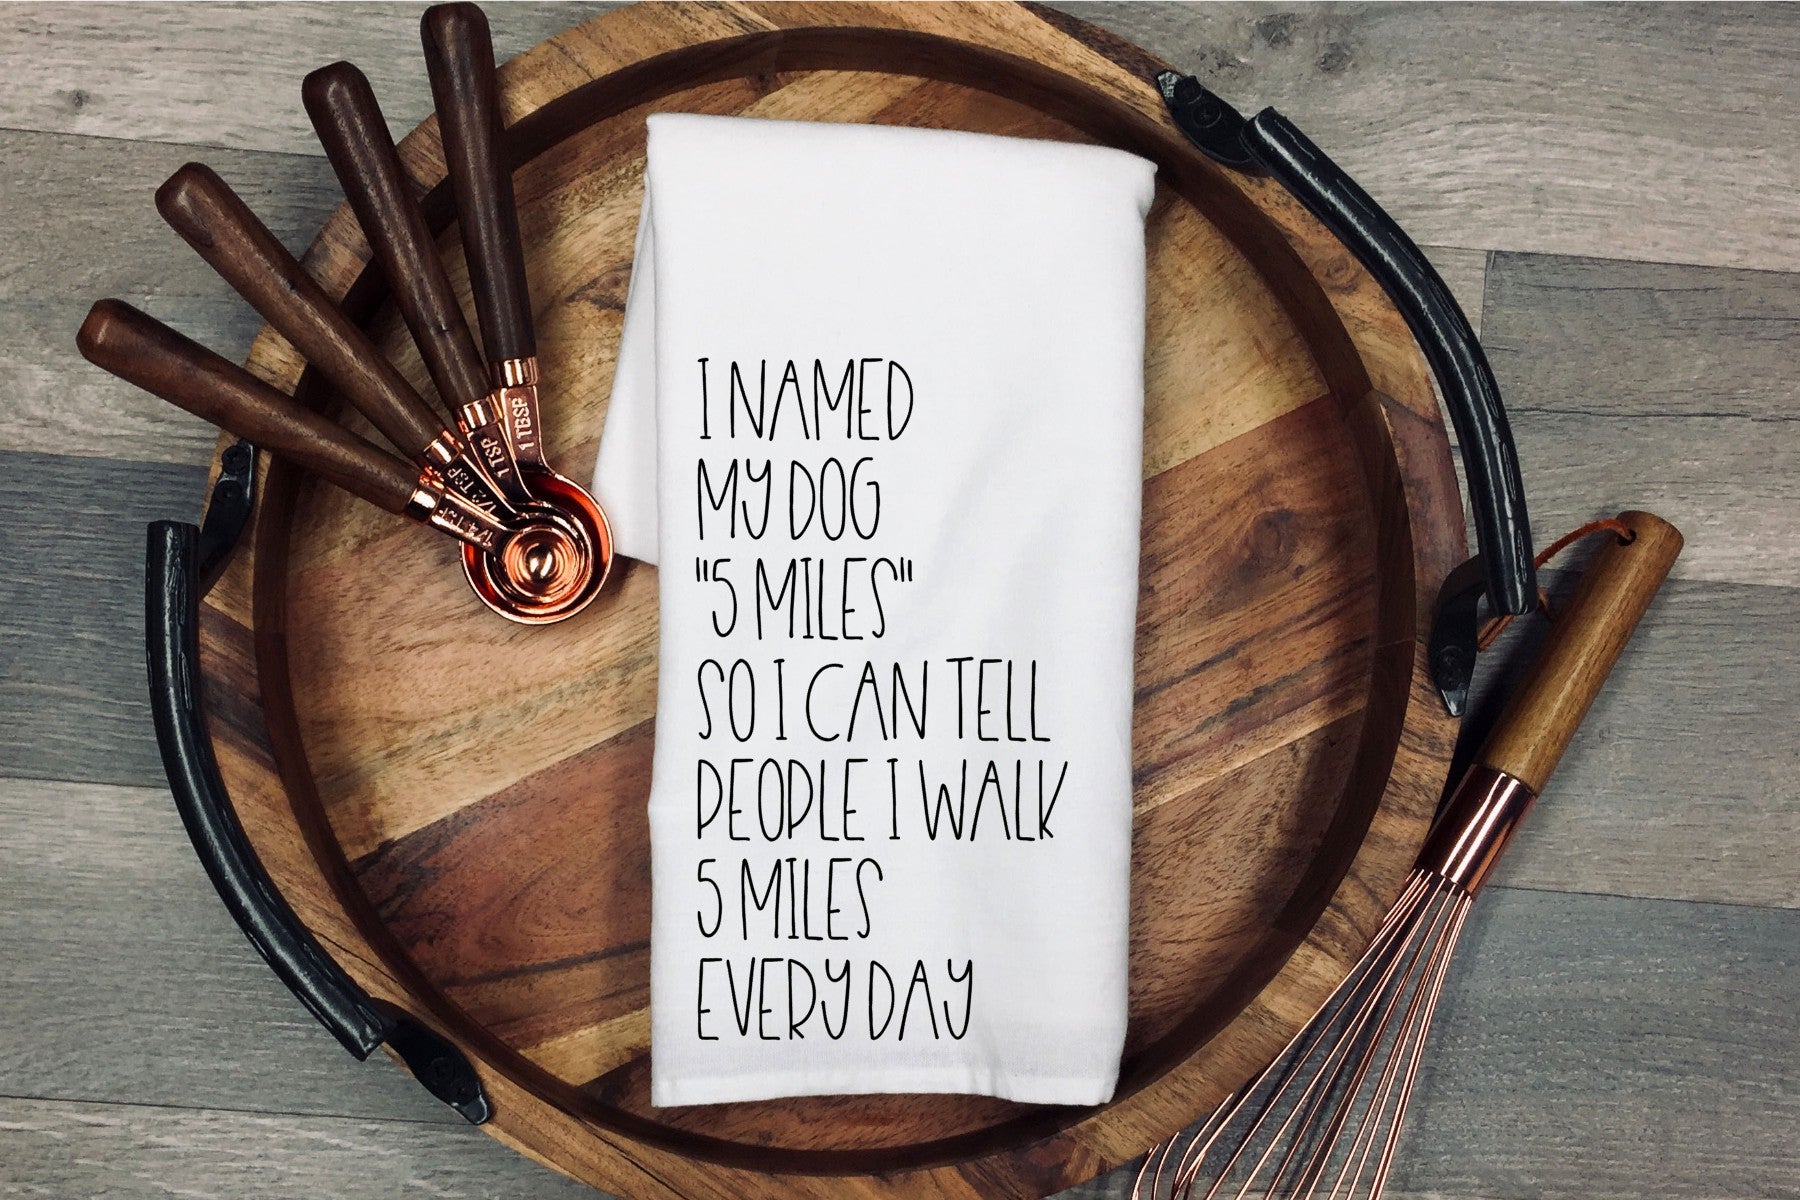 1 TBSP
1 TSP
1/2 TSP
1/4 TSP
I NAMED
MY DOG
"5 MILES"
SO I CAN TELL
PEOPLE I WALK
5 MILES
EVERY DAY